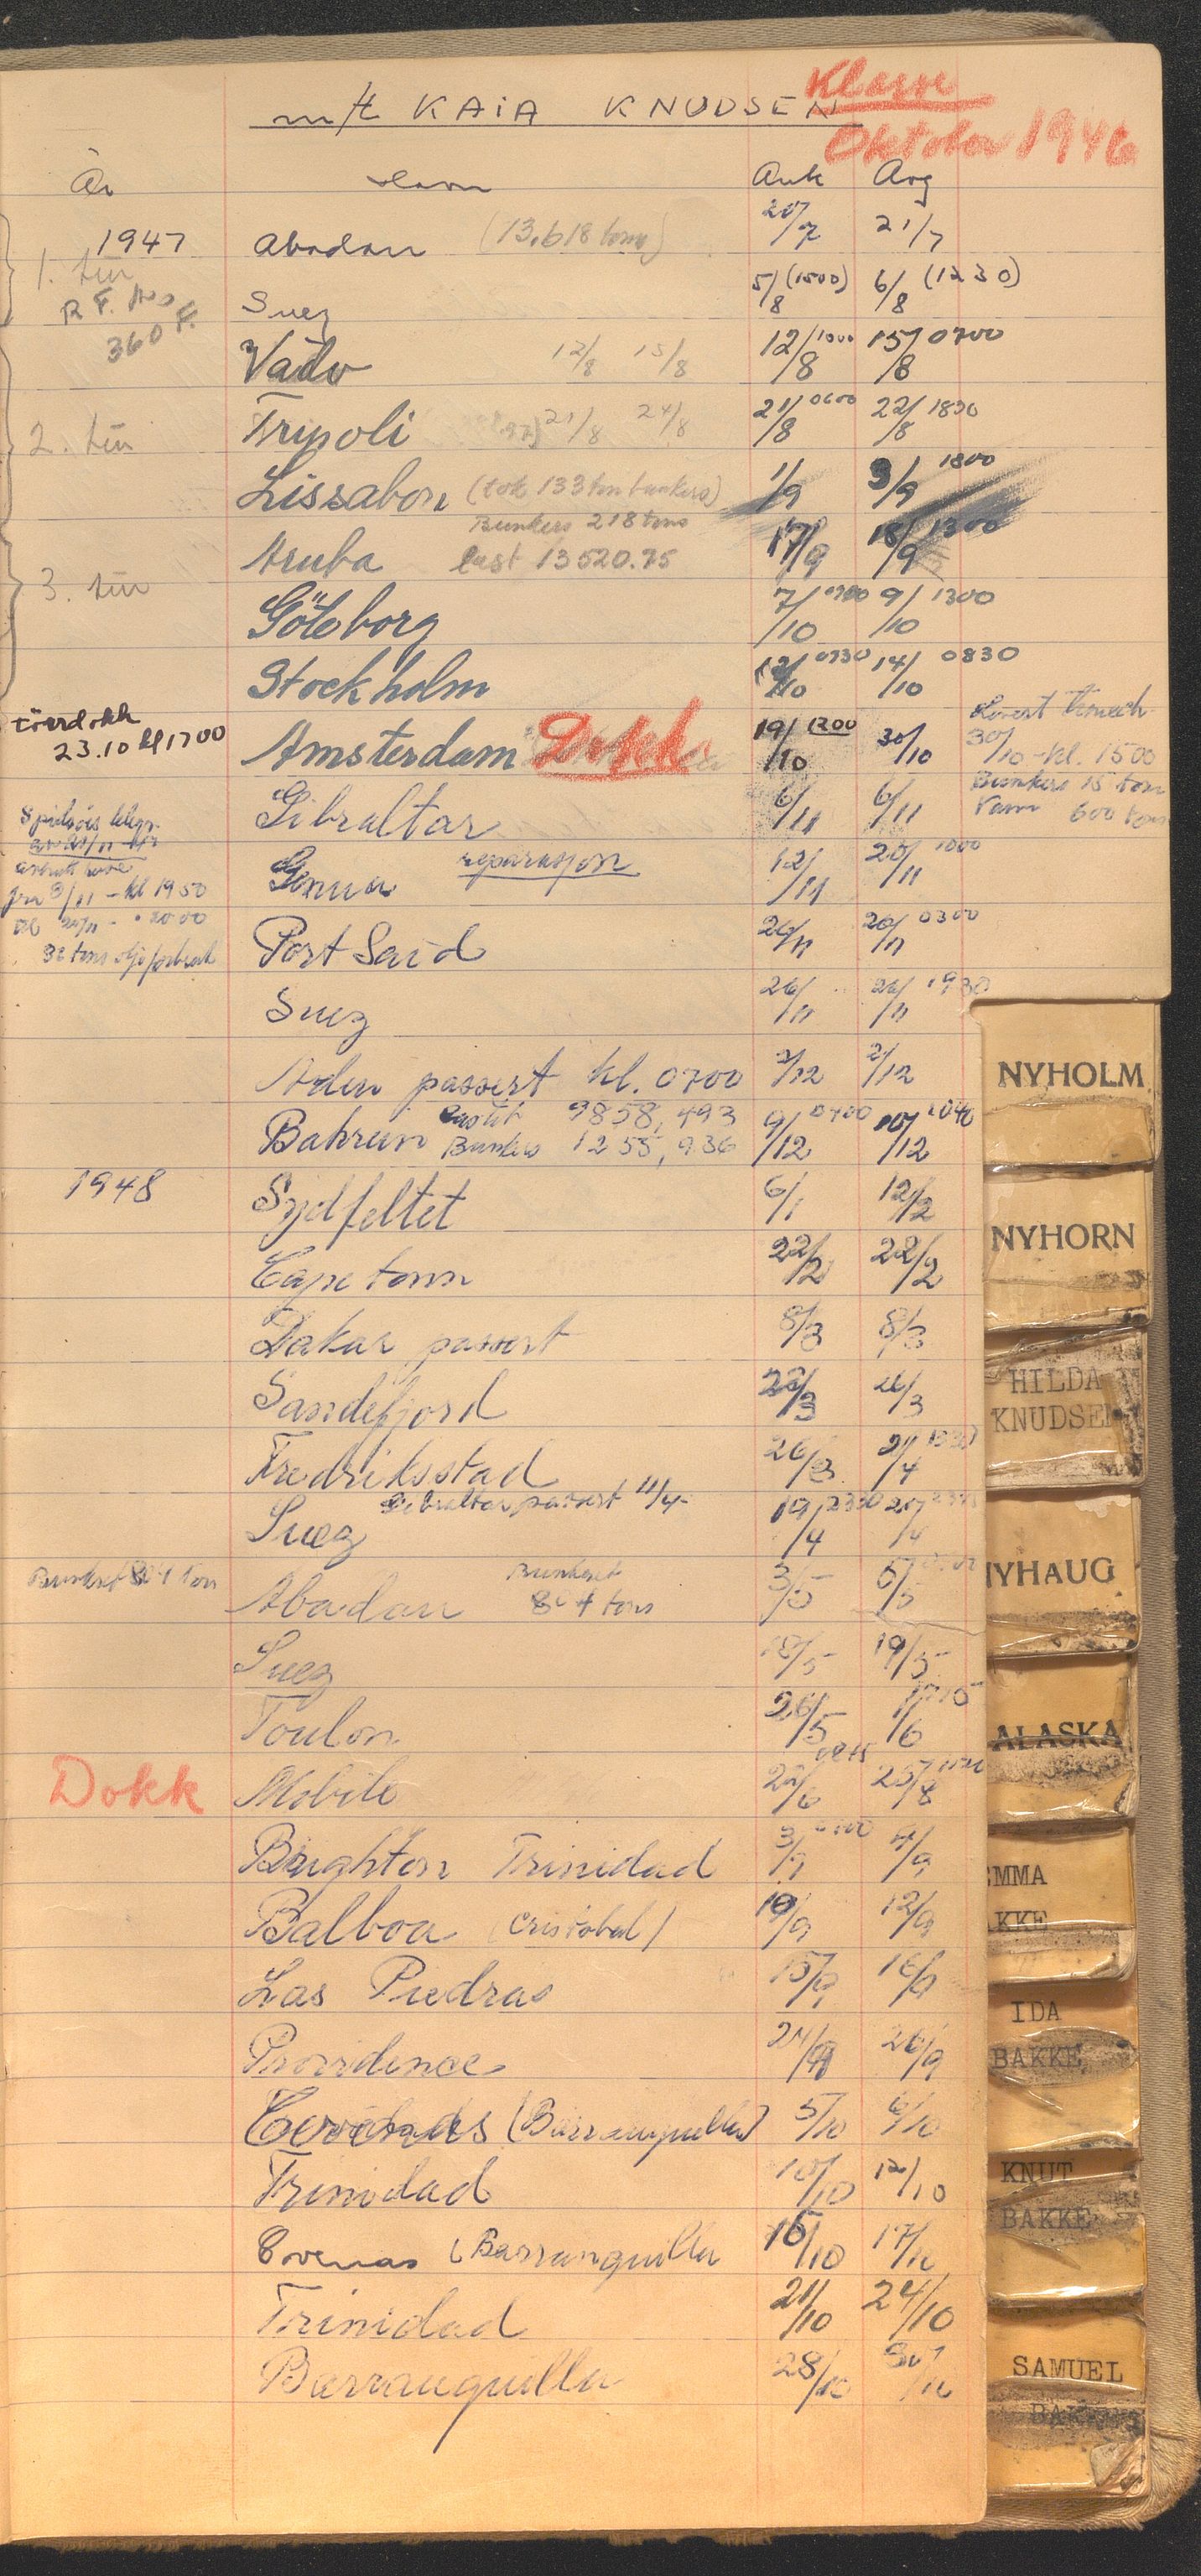 m/t KAIA KNUDSEN
Klasse
Oktober 1946
År Havn Ank Avg
1947 Abadan (13.618 tons) 20/7 21/7
1. tur
R.F. Aas F.
360
Suez 5/8 (1500) 6/8 (1230)
Vado 12/8 15/8 12/8 1000 15/8 0700
2. tur Tripoli 21/8 24/8 21/8 0600 22/8 1830
Lissabon (tok 133 tm bunkers) 1/9 3/9 1800
Bunkers 218 tons
Aruba last 13520.75 17/9 18/9 1300
3. tur
Göteborg 7/10 0700 9/10 1300
Stockholm 12/10 0930 14/10 0830
tørrdokk
23.10 kl 1700
Amsterdam Dokk 19/10 1200 30/10
30/10 - kl. 1500
Bunkers 15 ton
Vann 600 ton
Gibraltar 6/11 6/11
Genua reparasjon 12/11 20/11 1000
fra 8/11 - kl 1950
32 tons olje forbruk
Port Said 26/11 26/11 0300
Suez 26/11 26/11 1930
Aden passert kl. 0700 2/12 2/12
Bahrein 9858,493 9/12 0700 10/12 2040
Bunkers 1255,936
1948 Sydfeltet 6/1 12/2
Cape town 22/2 22/2
Dakar passert 8/3 8/3
Sandefjord 22/3 26/3
Fredriksstad 26/3 2/4 1330
Gibraltar passert 11/4-
Suez 19/4 2330 20/4
Bunkret 804 tons Abadan Bunkret 804 tons 3/5 5/5
Suez 18/5 19/5
Toulon 26/5 1/6 1715
Dokk Mobile 22/6 0815 25/8
Brighton Trinidad 3/9 4/9
Balboa (Cristobal) 10/9 12/9
Las Piedras 15/9 16/9
Providence 24/9 26/9
Covenas (Barranquilla) 5/10 6/10
Trinidad 10/10 12/10
Covenas (Barranquilla 16/10 17/10
Trinidad 21/10 24/10
Barranquilla 28/10 30/10
NYHOLM
NYHORN
HILDA
KNUDSEN
NYHAUG
ALASKA
EMMA
BAKKE
IDA
BAKKE
KNUT
BAKKE
SAMUEL
BAKKE